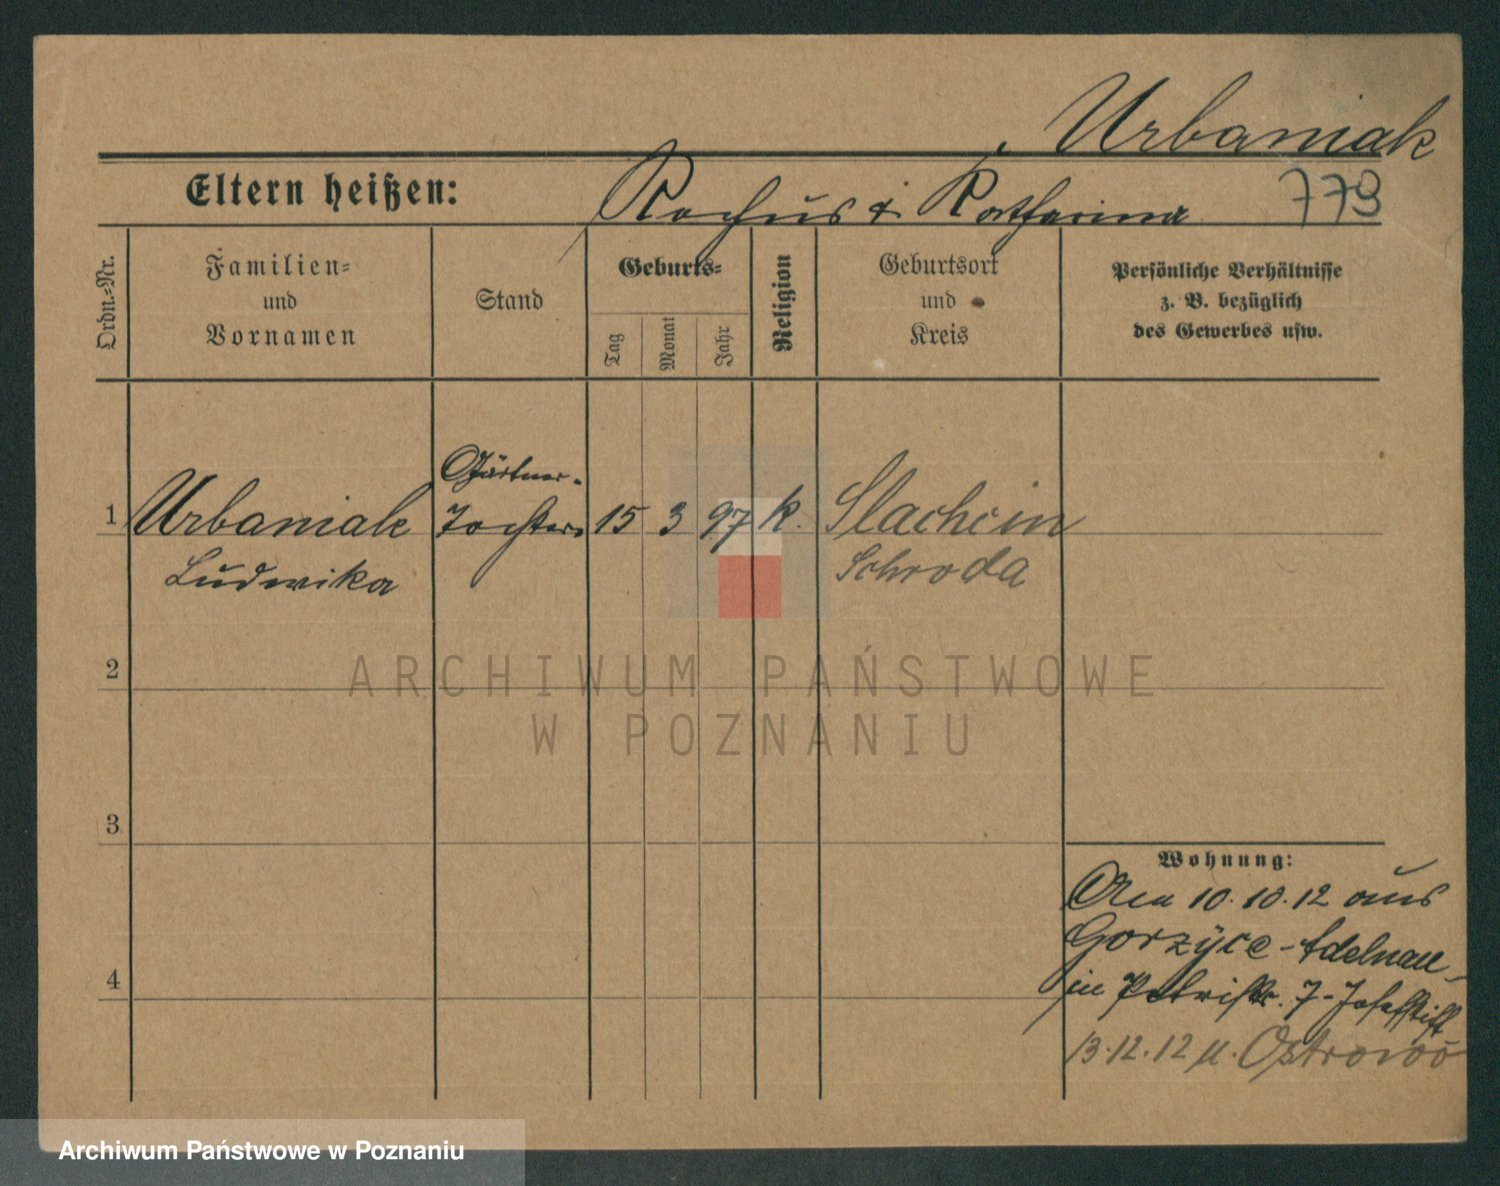 Urbaniak
Eltern heißen: Rochus & Katharina 779
Ordn.-Nr.
Familien-
und
Vornamen
Stand
Geburts-
Tag
Monat
Jahr
Religion
Geburtsort
und
Kreis
Persönliche Verhältnisse
z. B. bezüglich
des Gewerbes usw.
Gärtner-
1 Urbaniak Tochter 15 3 97 k. Slachcin
Ludwika Schroda
2
3
4
Wohnung:
Am 10.10.12 aus
Gorzyce-Adelnau
in Petristr. 7-Josefstift
13.12.12 n. Ostrowo
ARCHIWUM PAŃSTWOWE
W POZNANIU
Archiwum Państwowe w Poznaniu